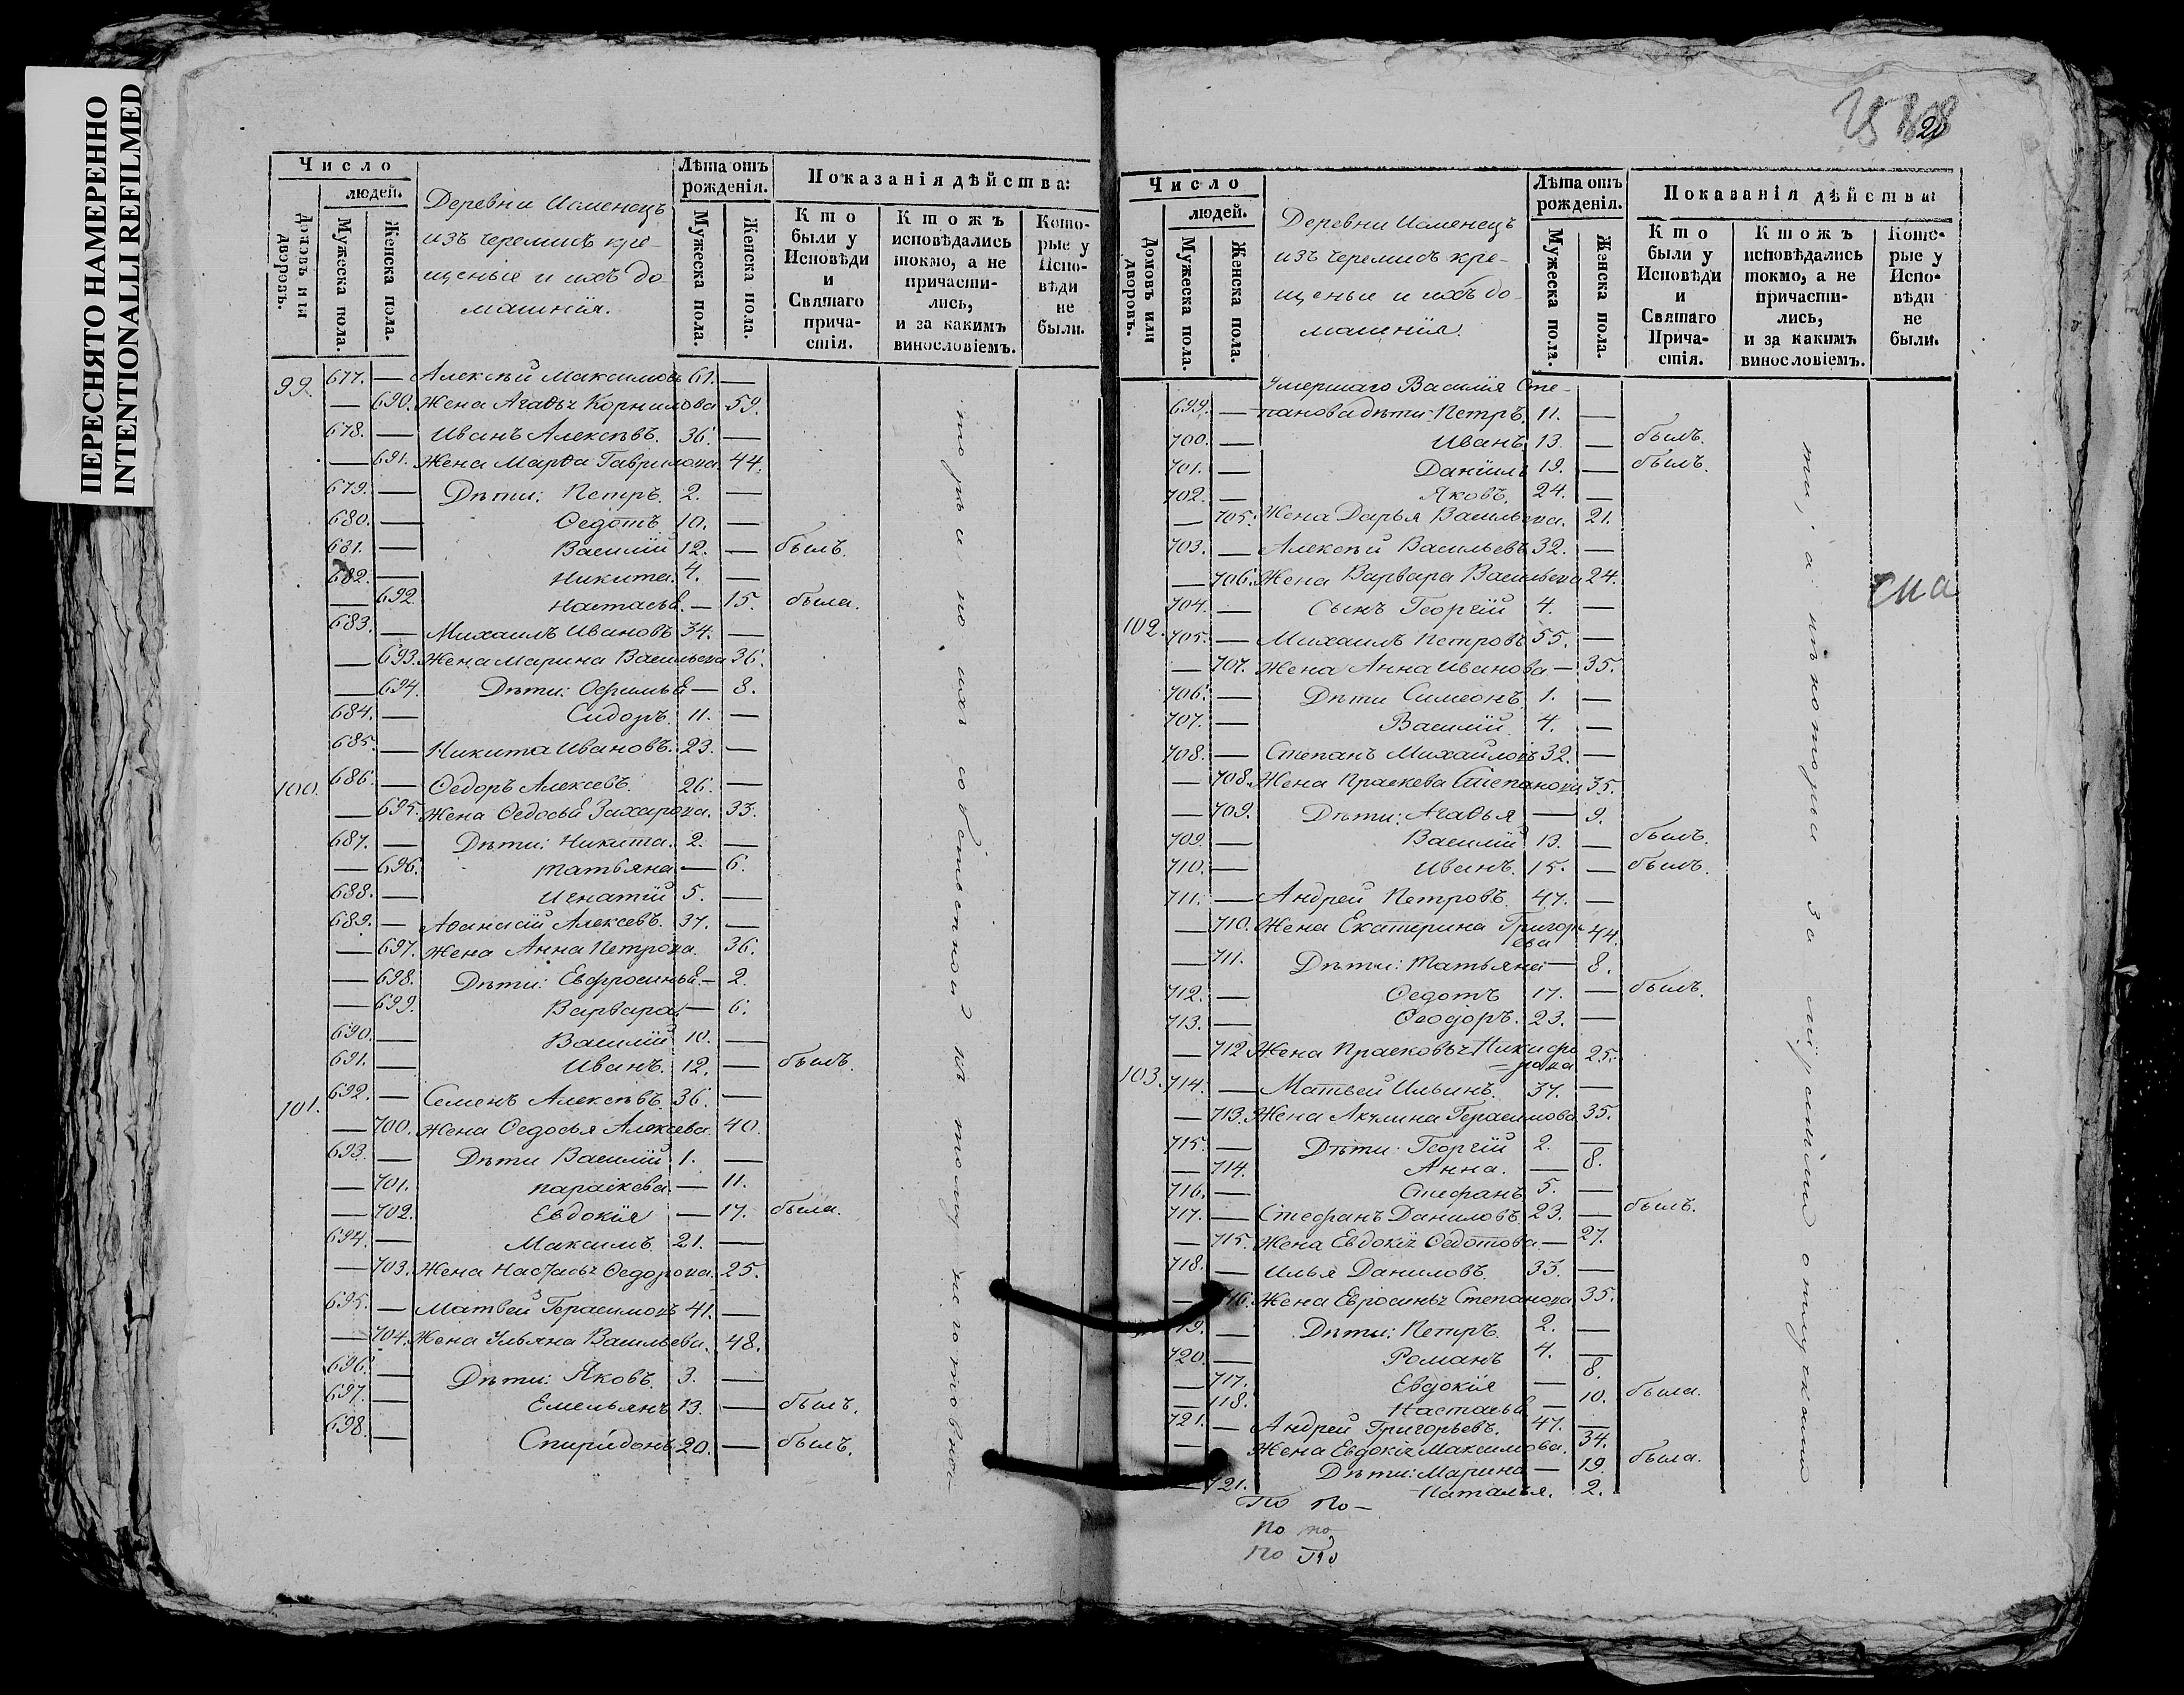 ПЕРЕСНЯТО НАМЕРЕННО
INTENTIONALLI REFILMED
Число
людей.
Домовъ или дворовъ.
Мужеска пола.
Женска пола.
Деревни Исменецъ
изъ черемисъ кре-
щеныя и ихъ до-
машнія.
Лѣта отъ рожденія.
Мужеска пола.
Женска пола.
Показанія дѣйства:
Кто были у Исповѣди и Святаго причастія.
Ктожъ исповѣдались токмо, а не причасти-лись, и за какимъ винословіемъ.
Кото-рые у Испо-вѣди не были.
99. 677. — Алексѣй Максимовъ 61. —
— 690. Жена Агаѳьъ Корнилова 59.
678. — Иванъ Алексѣвъ. 36. —
— 691. Жена Марѳа Гаврилова 44.
679. — Дѣти: Петръ. 2. —
680. — Ѳедотъ 10. —
681. — Василій 12. — былъ.
682. — Никита. 4. —
— 692. Настасья. — 15. была.
683. — Михаилъ Ивановъ 34. —
— 693. Жена Марина Васильева 36.
— 694. Дѣти: Офимья — 8.
684. — Сидоръ. 11. —
685. — Никита Ивановъ. 23. —
100. 686. — Ѳедоръ Алексевъ. 26. —
— 695. Жена Ѳедосья Захарова. 33.
687. — Дѣти: Никита. 2. —
— 696. Татьяна — 6.
688. — Игнатій 5. —
689. — Аѳанасій Алексевъ. 37. —
— 697. Жена Анна Петрова. 36.
— 698. Дѣти: Евфросинья. — 2.
— 699. Варвара. — 6.
690. — Василій 10. —
691. — Иванъ. 12. — былъ.
101. 692. — Семенъ Алексѣвъ 36. —
— 700. Жена Ѳедосья Алексева. 40.
693. — Дѣти Василій 1. —
— 701. Параскева. — 11.
— 702. Евдокія — 17. была.
694. — Максимъ. 21. —
— 703. Жена Настасьъ Ѳедорова. 25.
695. — Матвей Герасимовъ 41. —
— 704. Жена Ульяна Васильева. 48.
696. — Дѣти: Яковъ. 3. —
697. — Емельянъ 13. — былъ.
698. — Спиридонъ 20. — былъ.
Число
людей.
Домовъ или дворовъ.
Мужеска пола.
Женска пола.
Деревни Исменецъ
изъ черемисъ кре-
щеныя и ихъ до-
машнія.
Лѣта отъ рожденія.
Мужеска пола.
Женска пола.
Показанія дѣйства
Кто были у Исповѣди и Святаго Прича-стія.
Ктожъ исповѣдались токмо, а не причасти-лись, и за какимъ винословіемъ.
Кото-рые у Испо-вѣди не были.
Умершаго Василія Сте-
699. — панова дѣти: Петръ. 11. —
700. — Иванъ 13. — былъ.
701. — Даніилъ 19. — былъ.
702. — Яковъ. 24. —
— 705. Жена Дарья Васильева. 21.
703. — Алексѣй Васильевъ 32. —
— 706. Жена Варвара Васильева 24.
704. — Сынъ Георгій 4. —
102. 705. — Михаилъ Петровъ 55. —
— 707. Жена Анна Иванова — 35.
706. — Дѣти Симеонъ 1. —
707. — Василій. 4. —
708. — Степанъ Михайловъ 32. —
— 708. Жена Праскева Степанова 35.
— 709. Дѣти: Агаѳья — 9.
709. — Василій 13. — былъ.
710. — Иванъ. 15. — былъ.
711. — Андрей Петровъ. 47. —
— 710. Жена Екатерина Григорь
ева 44.
— 711. Дѣти: Татьяна — 8.
712. — Ѳедотъ 17. — былъ.
713. — Ѳеодоръ. 23. —
— 712. Жена Прасковьъ Никифо
=рова 25.
103. 714. — Матвей Ильинъ. 37. —
— 713. Жена Акулина Герасимова 35.
715. — Дѣти: Георгій 2. —
— 714. Анна. — 8.
716. — Стефанъ 5. —
717. — Стефанъ Даниловъ 23. — былъ.
— 715. Жена Евдокія Ѳедотова — 27.
718. — Илья Даниловъ. 33. —
— 716. Жена Евросиньъ Степанова 35.
719. — Дѣти: Петръ. 2. —
720. — Романъ 4. —
— 717. Евдокія — 8.
— 718. Настасья — 10. была.
721. — Андрей Григорьевъ. 47. —
— Жена Евдокія Максимова. 34.
Дѣти: Марина — 19. была.
— 721. Наталья. 2.
По по-
по по
по По